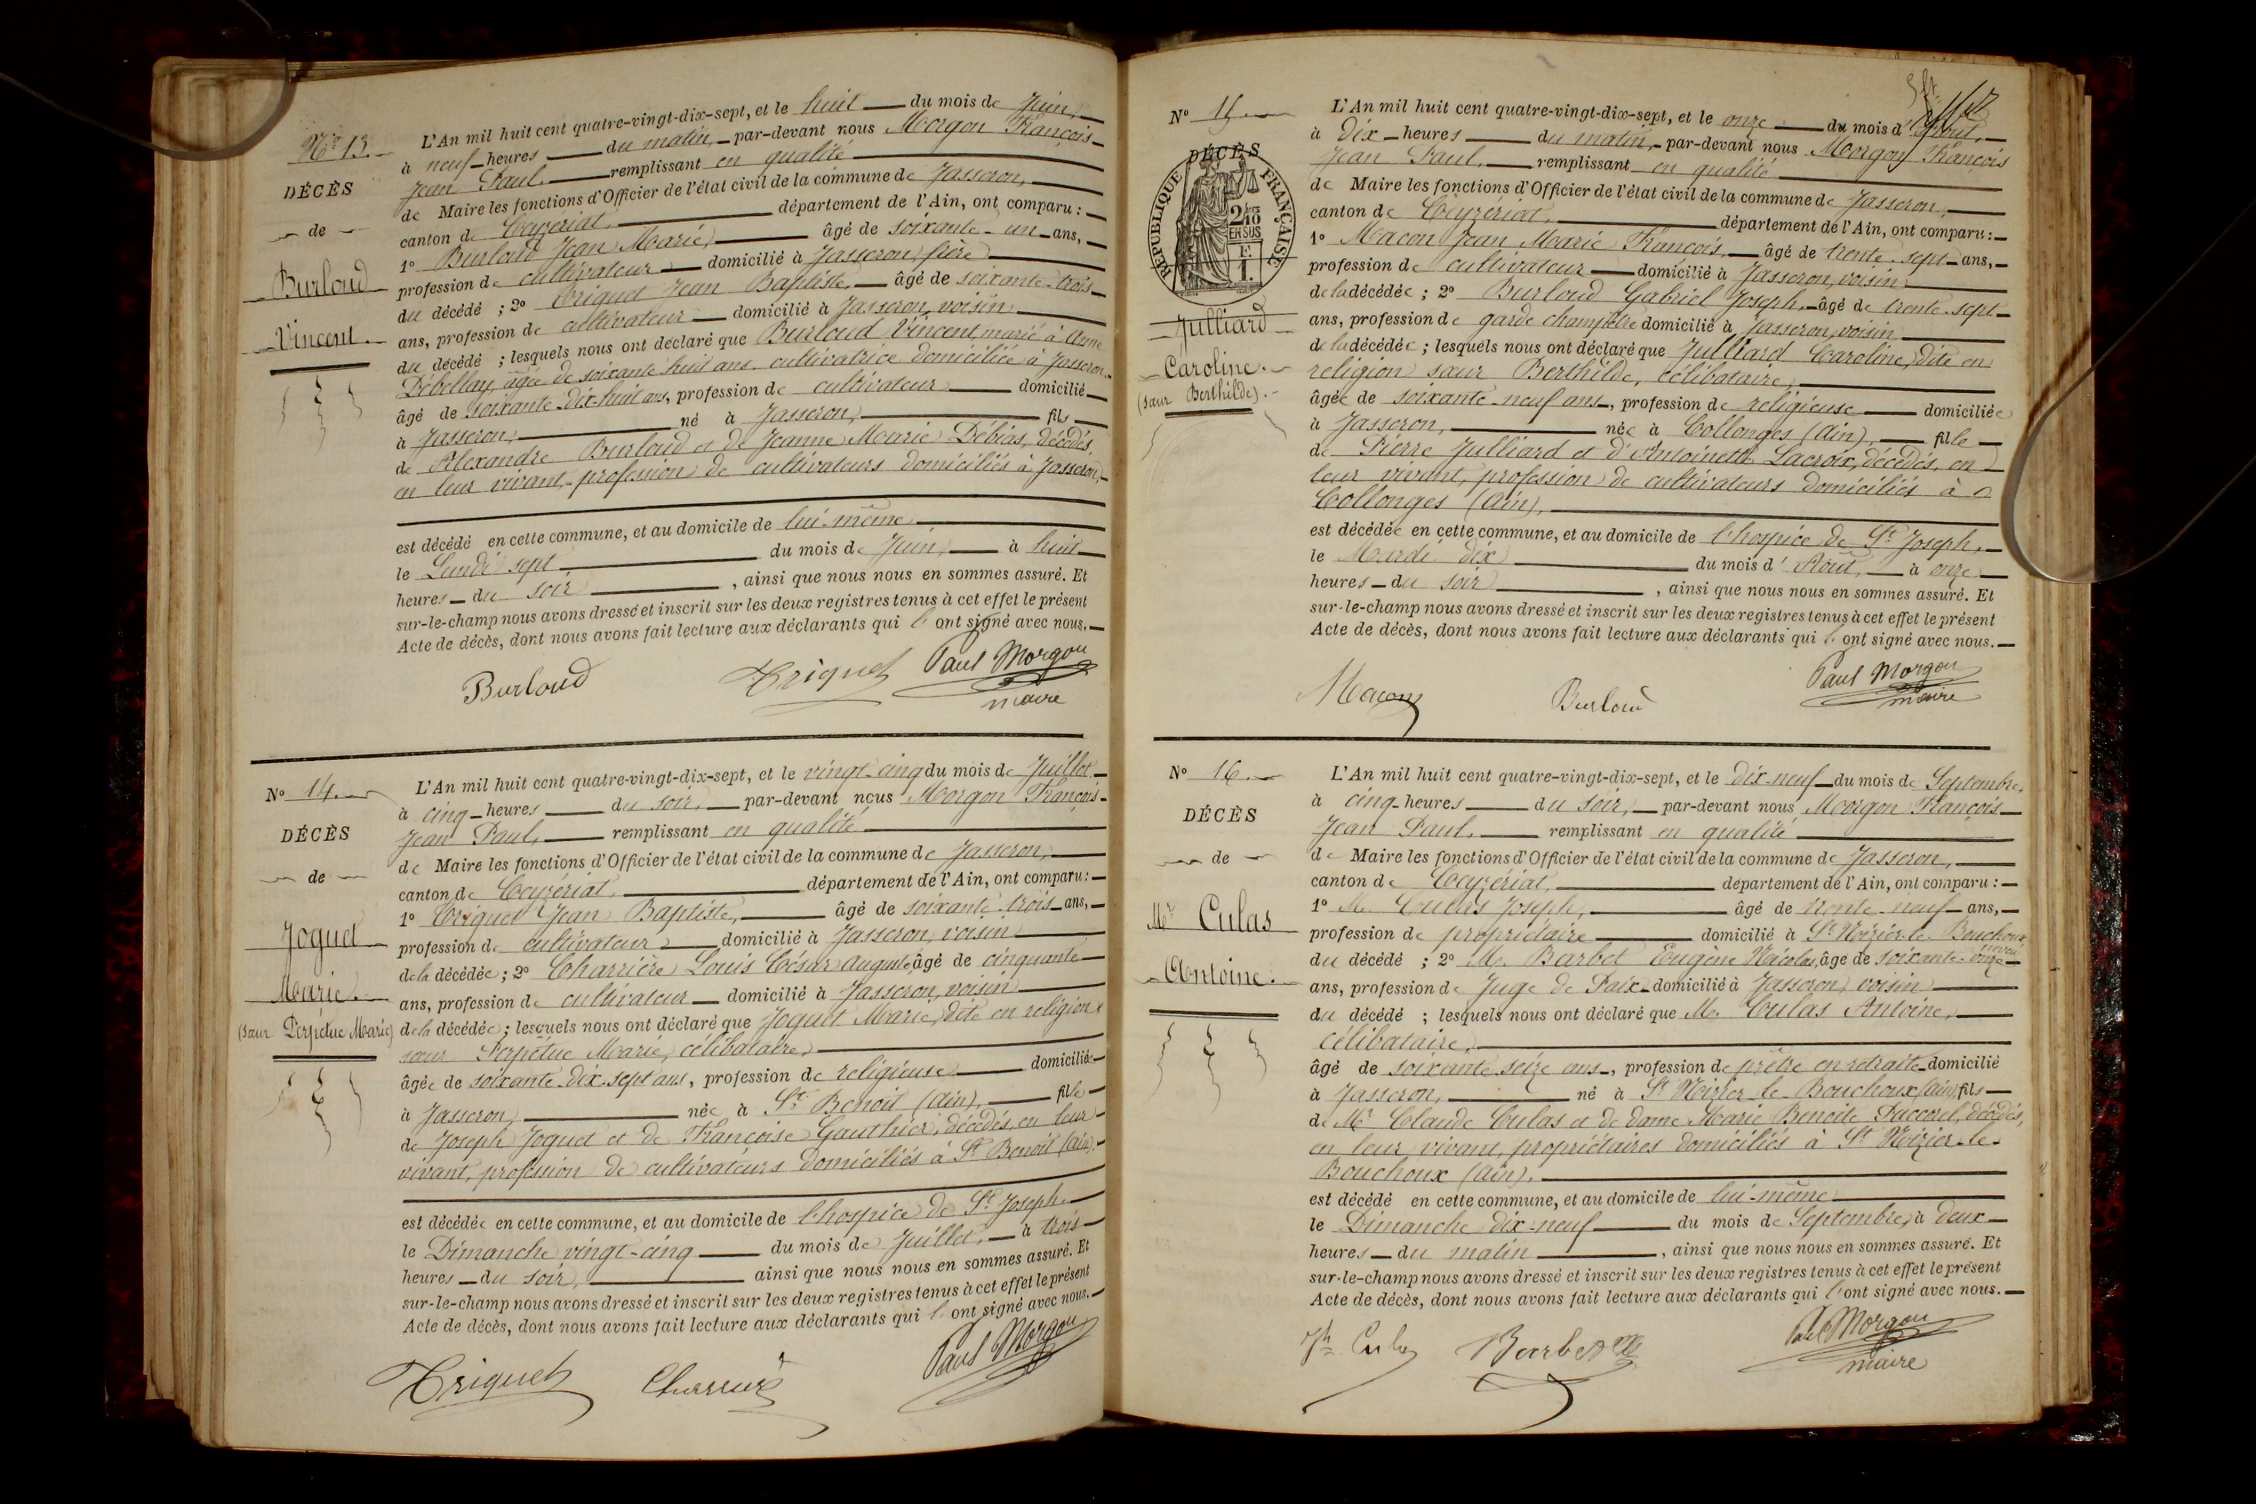 No 13.
DÉCÈS
de
Burloud
Vincent.
L'An mil huit cent quatre-vingt-dix-sept, et le huit du mois de Juin,
à neuf heures du matin, par-devant nous Morgon François
Jean Paul, remplissant en qualité
de Maire les fonctions d'Officier de l'état civil de la commune de Jasseron,
canton de Ceyzériat, département de l'Ain, ont comparu :
1° Burloud Jean Marie, âgé de soixante-un ans,
profession de cultivateur domicilié à Jasseron, frère
du décédé ; 2° Triquet Jean Baptiste, âgé de soixante-trois
ans, profession de cultivateur domicilié à Jasseron, voisin
du décédé ; lesquels nous ont déclaré que Burloud Vincent, marié à Anne
Débellay, âgée de soixante huit ans, cultivatrice domiciliée à Jasseron
âgé de soixante-dix-huit ans, profession de cultivateur domicilié
à Jasseron, né à Jasseron, fils
de Alexandre Burloud et de Jeanne Marie Débias, décédés,
en leur vivant, profession de cultivateurs domiciliés à Jasseron,
est décédé en cette commune, et au domicile de lui-même
le Lundi sept du mois de Juin, à huit
heures du soir, ainsi que nous nous en sommes assuré. Et
sur-le-champ nous avons dressé et inscrit sur les deux registres tenus à cet effet le présent
Acte de décès, dont nous avons fait lecture aux déclarants qui l'ont signé avec nous.
Burloud Triquet Paul Morgon
maire
No 14.
DÉCÈS
de
Joguet
Marie.
(sœur Perpétue Marie)
L'An mil huit cent quatre-vingt-dix-sept, et le vingt-cinq du mois de Juillet
à cinq heures du soir, par-devant nous Morgon François
Jean Paul, remplissant en qualité
de Maire les fonctions d'Officier de l'état civil de la commune de Jasseron,
canton de Ceyzériat, département de l'Ain, ont comparu :
1° Triquet Jean Baptiste, âgé de soixante-trois ans,
profession de cultivateur domicilié à Jasseron, voisin
de la décédée ; 2° Charrière Louis César Auguste, âgé de cinquante
ans, profession de cultivateur domicilié à Jasseron, voisin
de la décédée ; lesquels nous ont déclaré que Joguet Marie, dite en religion
sœur Perpétue Marie, célibataire,
âgée de soixante-dix-sept ans, profession de religieuse domiciliée
à Jasseron, née à St Benoit (Ain), fille
de Joseph Joguet et de Françoise Gauthier, décédés, en leur
vivant, profession de cultivateurs domiciliés à St Benoit (Ain),
est décédée en cette commune, et au domicile de l'hospice de St Joseph,
le Dimanche vingt-cinq du mois de Juillet, à trois
heures du soir, ainsi que nous nous en sommes assuré. Et
sur-le-champ nous avons dressé et inscrit sur les deux registres tenus à cet effet le présent
Acte de décès, dont nous avons fait lecture aux déclarants qui l'ont signé avec nous.
Triquet Charrière Paul Morgon
No 15
DÉCÈS
RÉPUBLIQUE FRANÇAISE
2/10 EN SUS
F.
1.
Julliard
Caroline.
(sœur Berthilde).
L'An mil huit cent quatre-vingt-dix-sept, et le onze du mois d'Août,
à dix heures du matin, par-devant nous Morgon François
Jean Paul, remplissant en qualité
de Maire les fonctions d'Officier de l'état civil de la commune de Jasseron,
canton de Ceyzériat, département de l'Ain, ont comparu :
1° Macon Jean Marie François, âgé de trente-sept ans,
profession de cultivateur domicilié à Jasseron, voisin
de la décédée ; 2° Burloud Gabriel Joseph, âgé de trente-sept
ans, profession de garde champêtre domicilié à Jasseron, voisin
de la décédée ; lesquels nous ont déclaré que Julliard Caroline, dite en
religion sœur Berthilde, célibataire,
âgée de soixante-neuf ans, profession de religieuse domiciliée
à Jasseron, née à Collonges (Ain), fille
de Pierre Julliard et d'Antoinette Lacroix, décédés, en
leur vivant, profession de cultivateurs domiciliés à
Collonges (Ain),
est décédée en cette commune, et au domicile de l'hospice de St Joseph,
le Mardi dix du mois d'Août, à onze
heures du soir, ainsi que nous nous en sommes assuré. Et
sur-le-champ nous avons dressé et inscrit sur les deux registres tenus à cet effet le présent
Acte de décès, dont nous avons fait lecture aux déclarants qui l'ont signé avec nous.
Macon Burloud Paul Morgon
maire
No 16.
DÉCÈS
de
Mr Culas
Antoine.
L'An mil huit cent quatre-vingt-dix-sept, et le dix-neuf du mois de Septembre,
à cinq heures du soir, par-devant nous Morgon François
Jean Paul, remplissant en qualité
de Maire les fonctions d'Officier de l'état civil de la commune de Jasseron,
canton de Ceyzériat, département de l'Ain, ont comparu :
1° M. Culas Joseph, âgé de trente-neuf ans,
profession de propriétaire domicilié à St Nizier-le-Bouchoux, neveu
du décédé ; 2° M. Barbet Eugène Nicolas, âgé de soixante-onze
ans, profession de Juge de Paix domicilié à Jasseron, voisin
du décédé ; lesquels nous ont déclaré que M. Culas Antoine,
célibataire,
âgé de soixante-seize ans, profession de prêtre en retraite domicilié
à Jasseron, né à St Nizier-le-Bouchoux (Ain) fils
de Mr Claude Culas et de dame Marie Benoite Paccard, décédés,
en leur vivant, propriétaires domiciliés à St Nizier-le-
Bouchoux (Ain).
est décédé en cette commune, et au domicile de lui-même
le Dimanche dix-neuf du mois de Septembre, à deux
heures du matin, ainsi que nous nous en sommes assuré. Et
sur-le-champ nous avons dressé et inscrit sur les deux registres tenus à cet effet le présent
Acte de décès, dont nous avons fait lecture aux déclarants qui l'ont signé avec nous.
Jh Culas Barbet Paul Morgon
maire